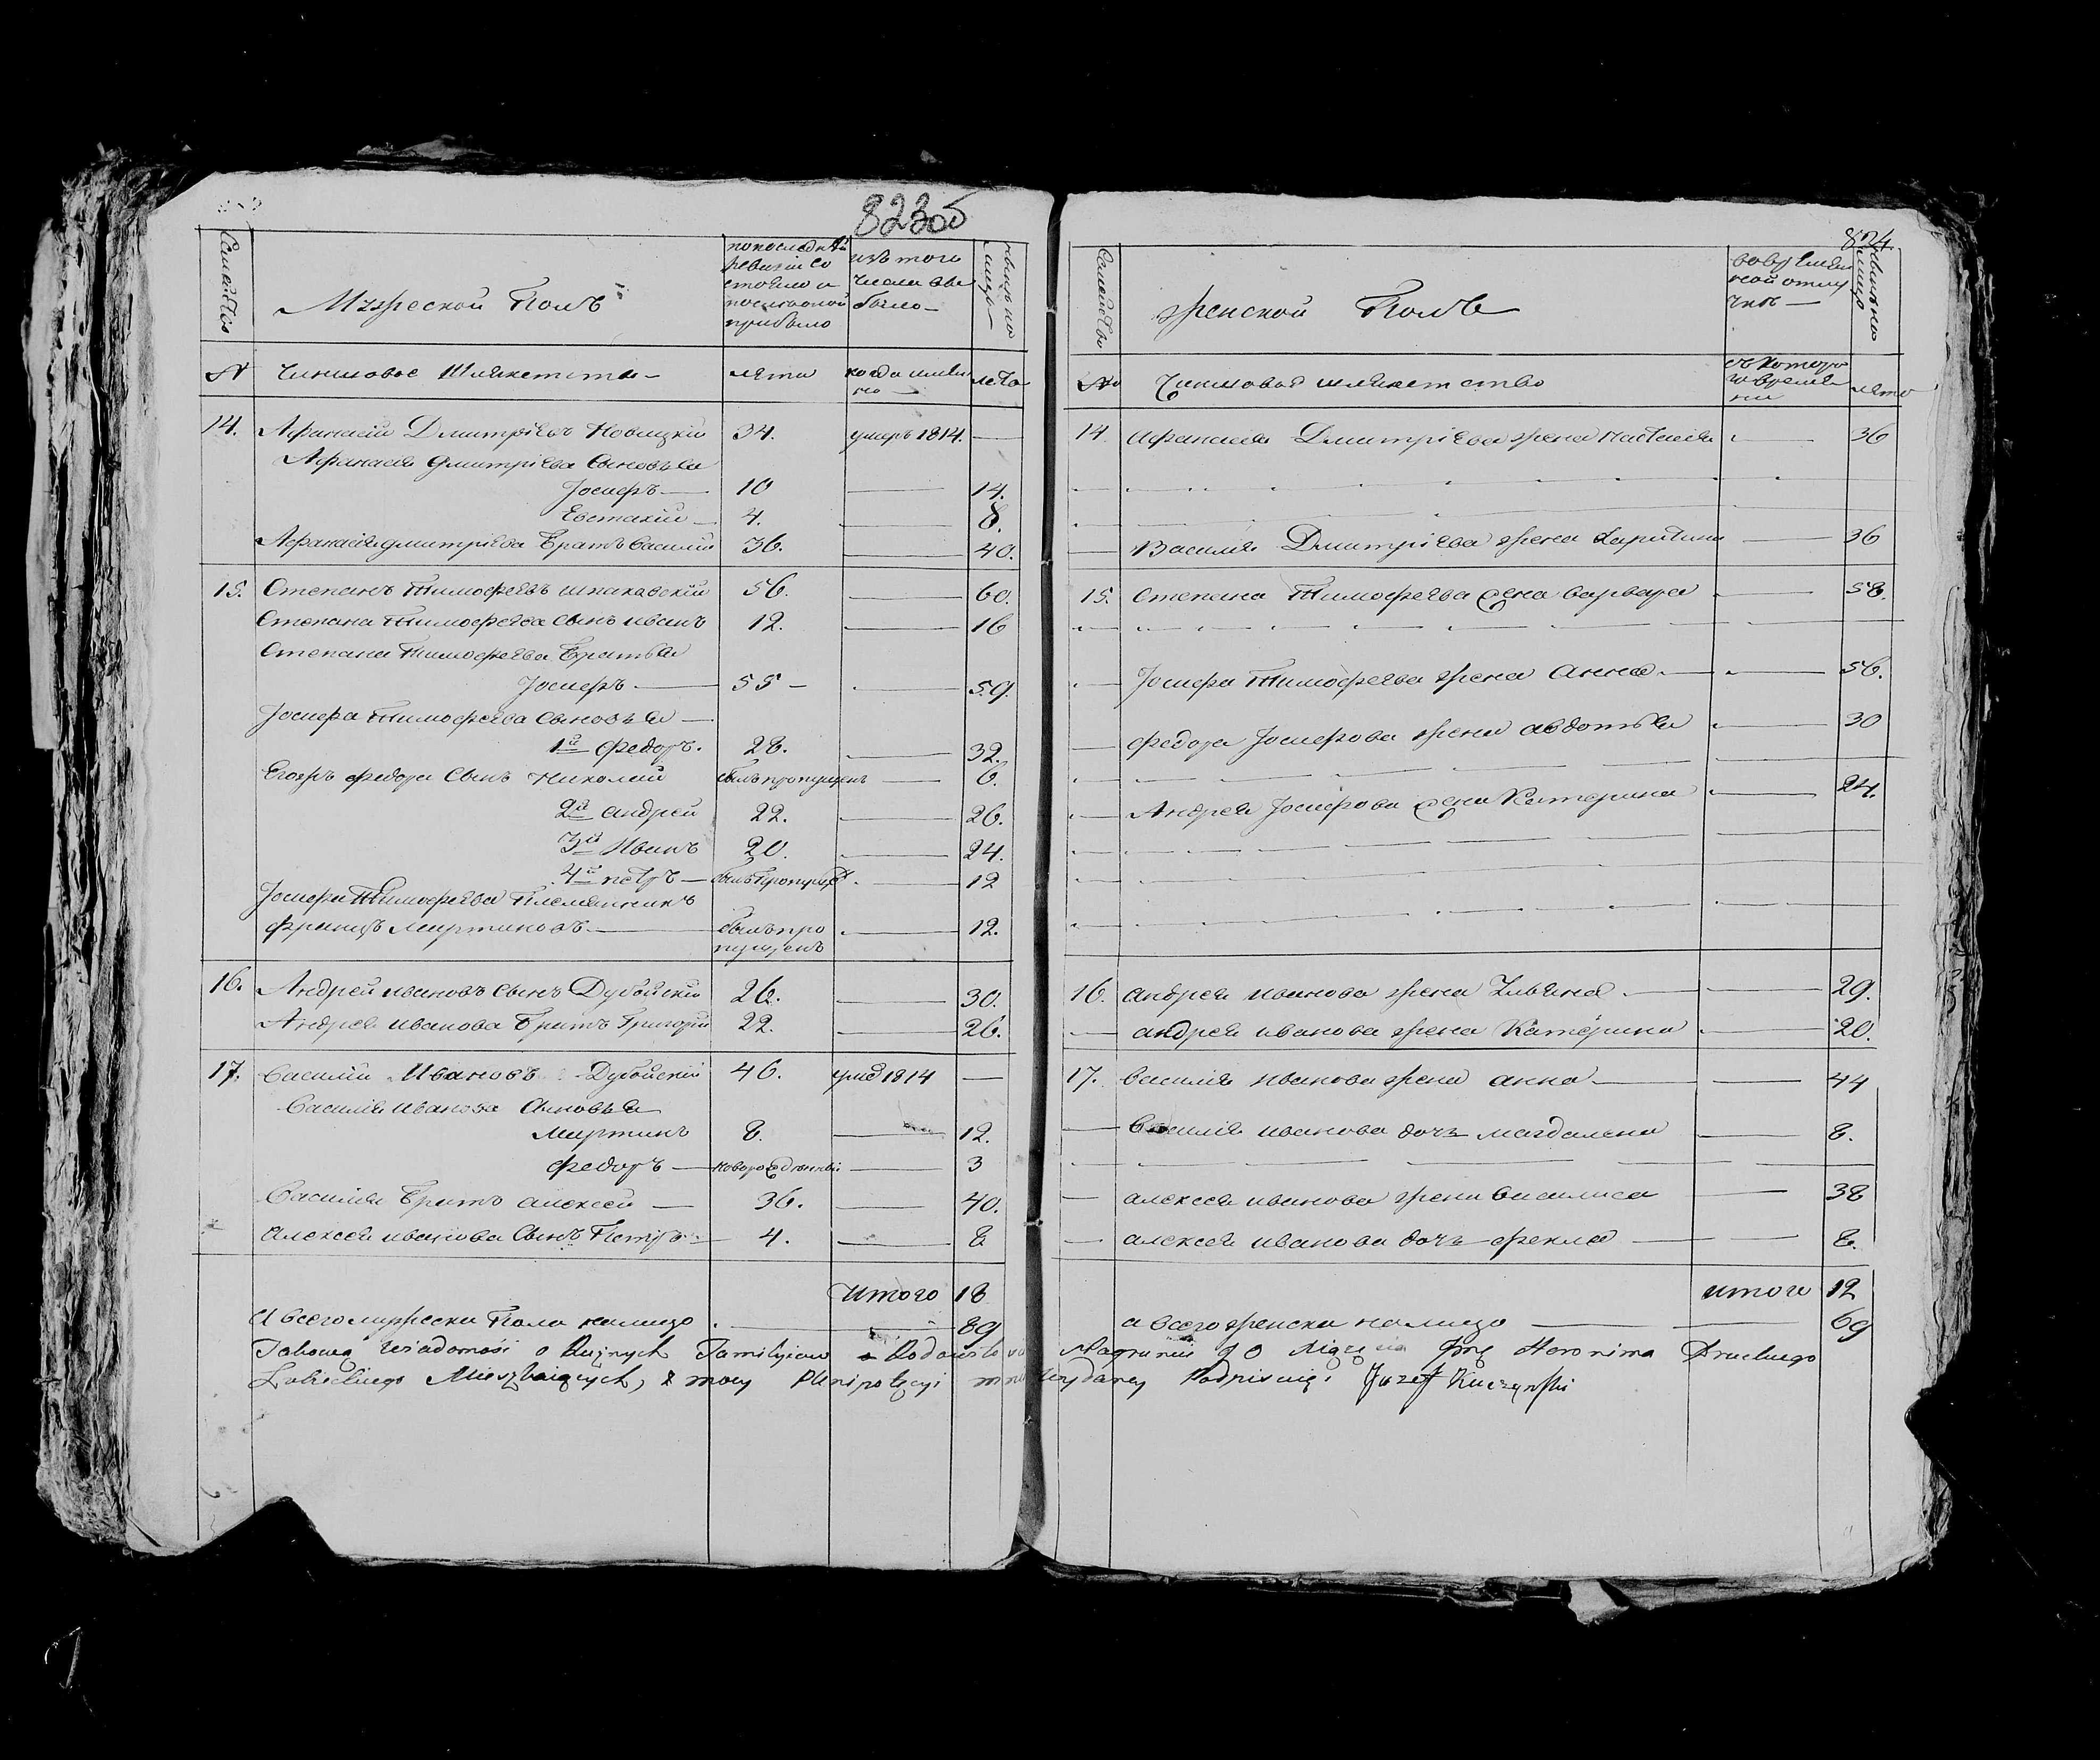 823об
Семейство
Мужеской Полъ
по последней ревизіи состояло и после оной прибыло
изъ того числа выбыло
ныне на лицо
№
Чиншовое Шляхетство
лета
когда именно
лета
14. Афанасій Дмитріевъ Новицкій 34. умеръ 1814. —
Афанасія Дмитріева Сыновья
Іосифъ — 10 — 14.
Евстахій — 4. — 8.
Афанасія Дмитріева Братъ Василій 36. — 40.
15. Степанъ Тимофеевъ Шпаковскій 56. — 60.
Степана Тимофеева Сынъ Иванъ 12. — 16
Степана Тимофеева Братья
Іосифъ — 55 — 59.
Іосифа Тимофеева Сыновья —
1й Федоръ. 28. — 32.
Егожъ Федора Сынъ Николай былъ пропущенъ — 6.
2й Андрей 22. — 26.
3й Иванъ 20. — 24.
4й Петръ — былъ пропущ. — 12
Іосифа Тимофеева Племянникъ
Францъ Мартиновъ — былъ пропущенъ — 12.
16. Андрей Ивановъ Сынъ Дубойскій 26. — 30.
Андрея Иванова Братъ Григорій 22. — 26.
17. Василій Ивановъ Дубойскій 46. умер 1814 —
Василія Иванова Сыновья
Мартинъ 8. — 12.
Федоръ — новорожденный — 3
Василія Братъ Алексей — 36. — 40.
Алексея Иванова Сынъ Петръ — 4. — 8
Итого 18
А всего мужеска Пола налицо — 89
824
Семейство
Женской Полъ
во временной отлучке —
ныне на лицо
№
Чиншовое шляхетство
съ котораго времени
лета
14. Афанасія Дмитріева жена Настасія — 36
Василія Дмитріева жена Харитина — 36
15. Степана Тимофеева жена Варвара — 58.
Іосифа Тимофеева жена Анна — 56.
Федора Іосифова жена Авдотья — 30
Андрея Іосифова жена Катерина — 24.
16. Андрея Иванова жена Ульяна — 29.
Андрея Иванова жена Катерина — 20.
17. Василія Иванова жена Анна — 44
Василія Иванова дочь Магдалена — 8.
Алексея Иванова жена Василиса — 38
Алексея Иванова дочь Фекла — 8.
итого 12
а всего женска налицо — 69
Takową Wiadomość o Rużnych Familyiow Na gruncie JO Xięcia Hieronima Druckiego
Lubeckiego Mieszkaiących, z mocy Plenipotęcyi mnie Wydaney Podpisuię: Jozef Kuczyński